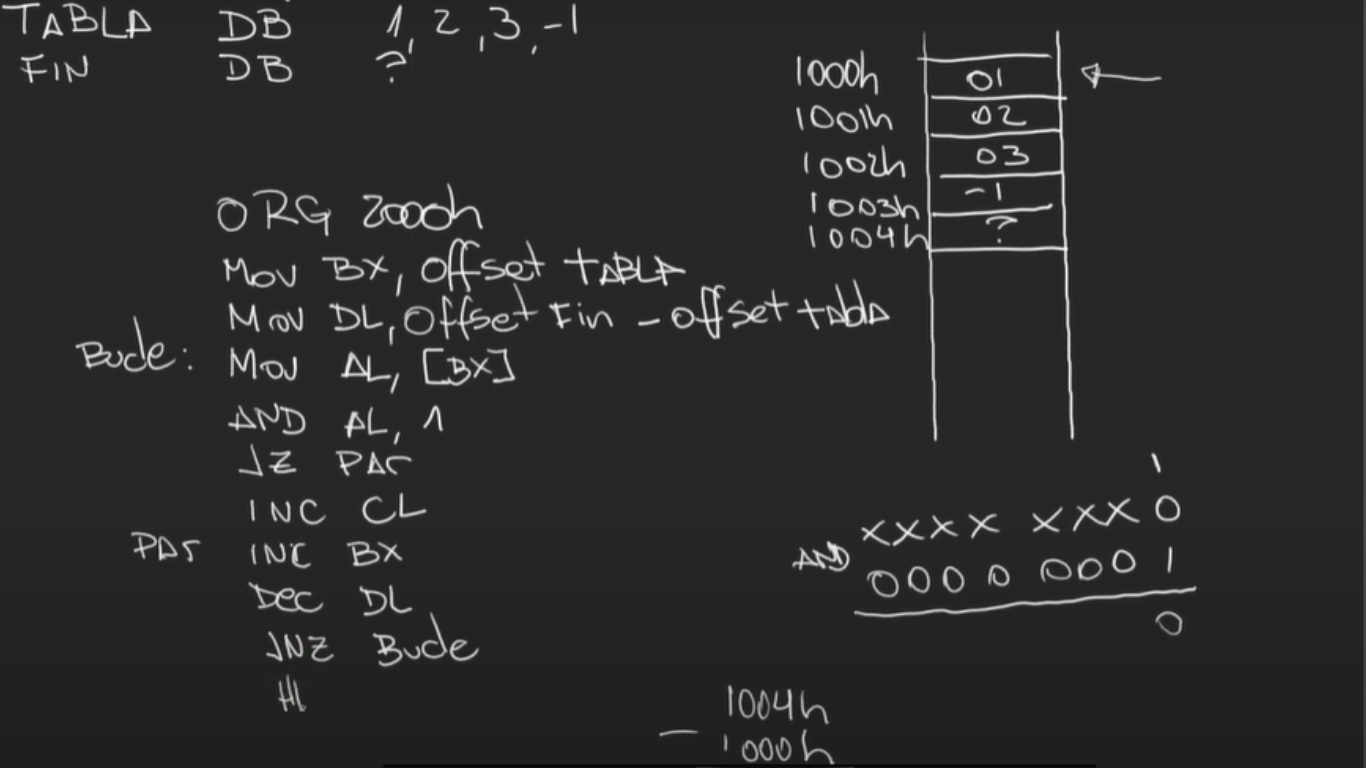 TABLA DB 1, 2, 3, -1
FIN DB ?
ORG 2000h
MOV BX, Offset TABLA
MOV DL, Offset Fin - offset tabla
Bucle: MOV AL, [BX]
AND AL, 1
JZ PAr
INC CL
PAr INC BX
Dec DL
JNZ Bucle
Hl
1000h 01
1001h 02
1002h 03
1003h -1
1004h ?
1
XXXX XXX0
AND 0000 0001
0
1004h
- 1000h